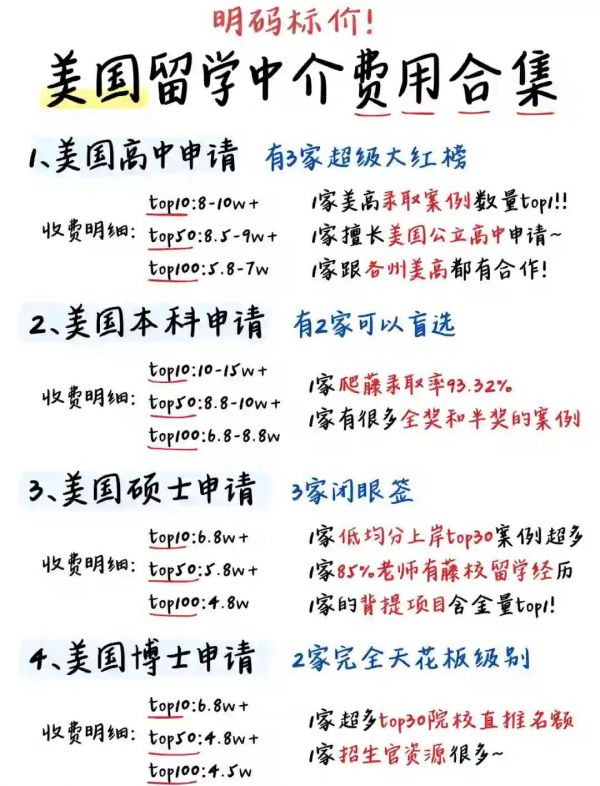 明码标价!
美国留学中介费用合集
1、美国高中申请 有3家超级大红榜
收费明细:
top10:8-10w+
top50:8.5-9w+
top100:5.8-7w
1家美高录取案例数量top1!!
1家擅长美国公立高中申请~
1家跟各州美高都有合作!
2、美国本科申请 有2家可以盲选
收费明细:
top10:10-15w+
top50:8.8-10w+
top100:6.8-8.8w
1家爬藤录取率93.32%
1家有很多全奖和半奖的案例
3、美国硕士申请 3家闭眼签
收费明细:
top10:6.8w+
top50:5.8w+
top100:4.8w
1家低均分上岸top30案例超多
1家85%老师有藤校留学经历
1家的背提项目含金量top1!
4、美国博士申请 2家完全天花板级别
收费明细:
top10:6.8w+
top50:4.8w+
top100:4.5w
1家超多top30院校直推名额
1家招生官资源很多~